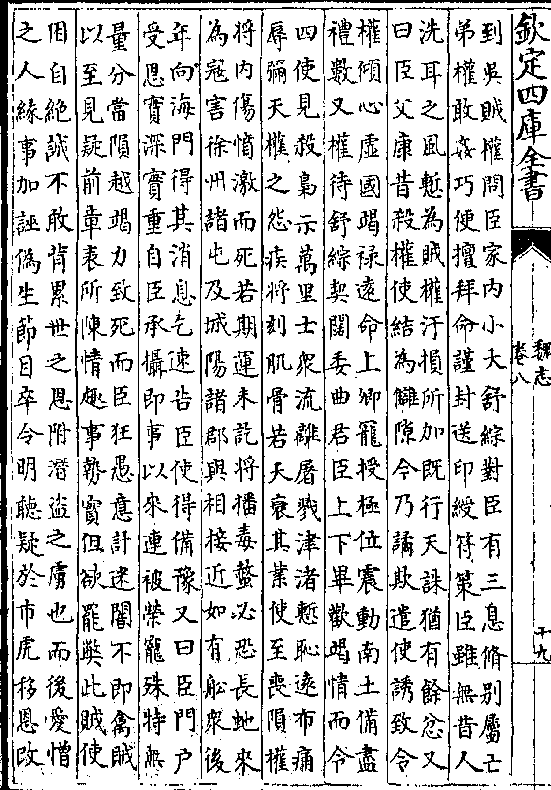 欽定四庫全書
魏志
卷八
十九
到吳賊權問臣家内小大舒綜對臣有三息脩别屬亡
弟權敢姦巧便擅拜命謹封送印綬符策臣雖無昔人
洗耳之風慙為賊權汙損所加既行天誅猶有餘忿又
曰臣父康昔殺權使結為讎隙今乃譎欺遣使誘致令
權傾心虛國竭禄遠命上卿寵授極位震動南土備盡
禮數又權待舒綜契闊委曲君臣上下畢歡竭情而令
四使見殺梟示萬里士衆流離屠戮津渚慙恥逺布痛
辱彌天權之怨疾將刻肌骨若天衰其業使至喪隕權
將内傷憤激而死若期運未訖將播毒螫必恐長虵來
為寇害徐州諸屯及城陽諸郡與相接近如有船衆後
年向海門得其消息乞速告臣使得備豫又曰臣門户
受恩實深實重自臣承攝即事以來連被榮寵殊特無
量分當隕越竭力致死而臣狂愚意計迷闇不即禽賊
以至見疑前章表所陳情趣事勢實但欲罷弊此賊使
困自絶誠不敢背累世之恩附僭盗之虜也而後愛憎
之人緣事加誣偽生節目卒令明聽疑於市虎移恩改